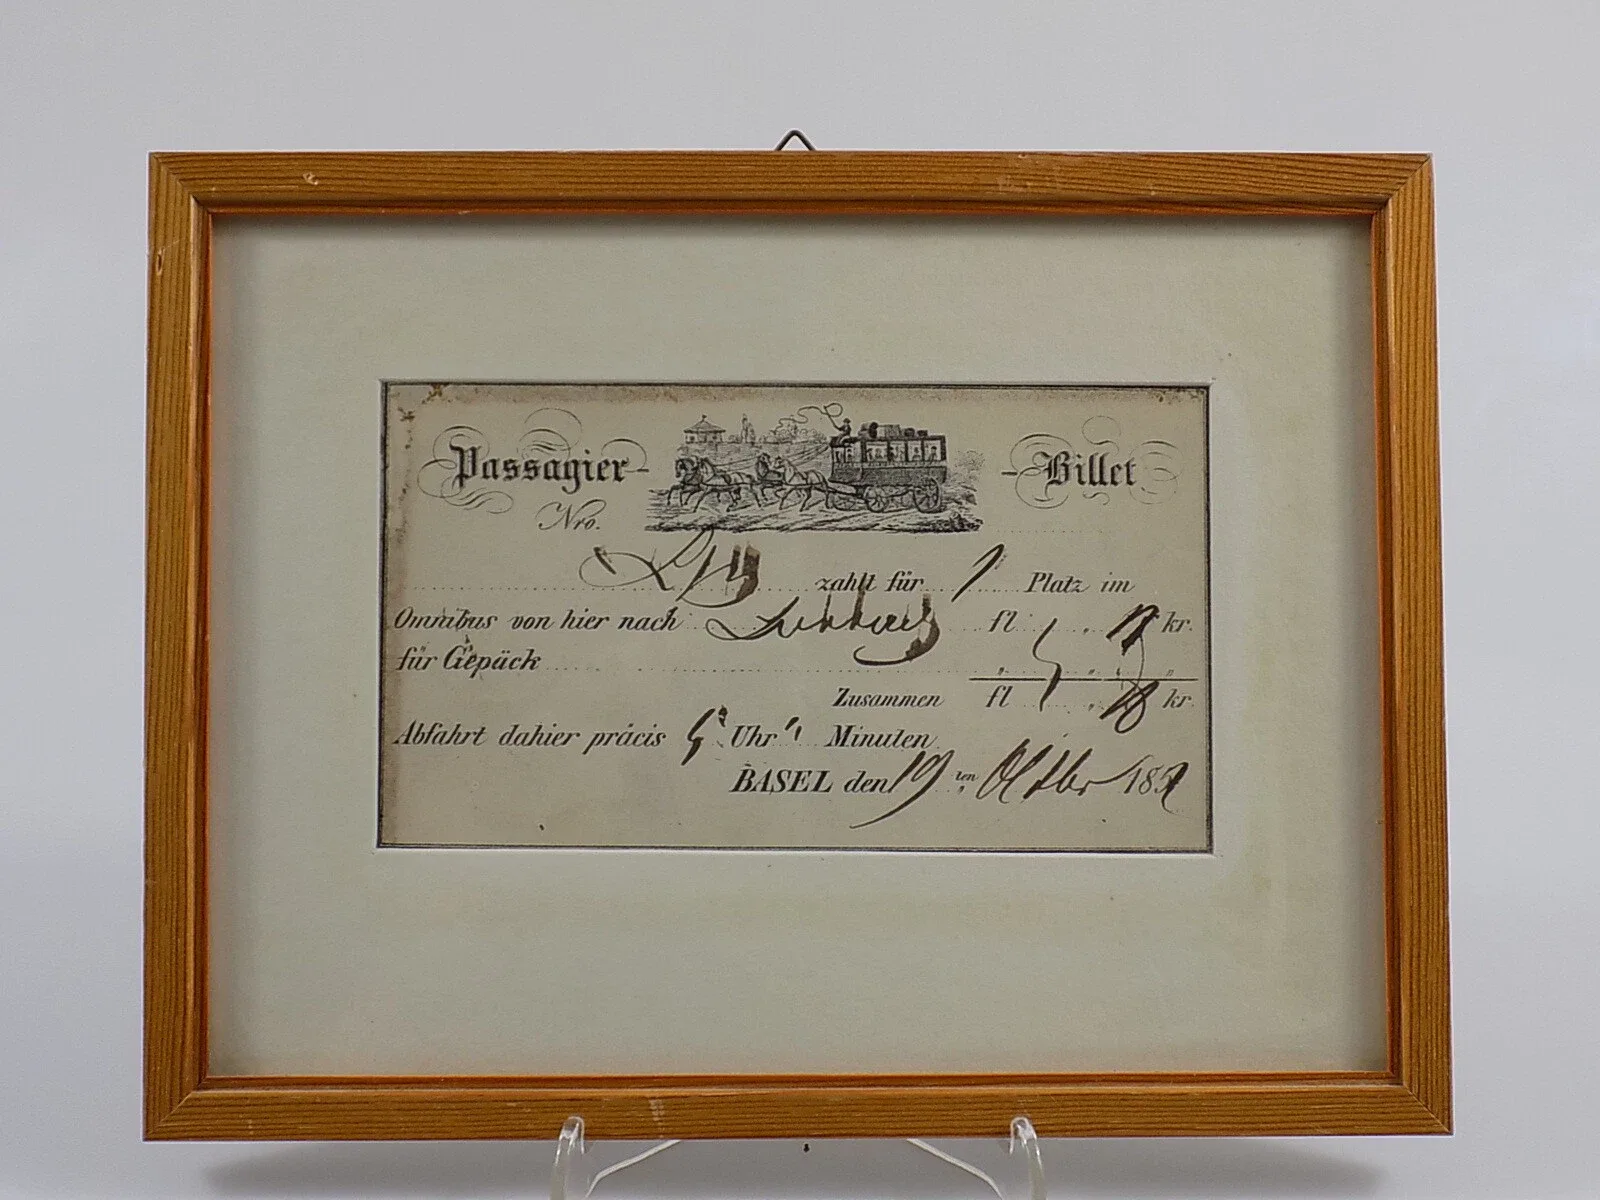 Passagier- -Billet
Nro.
zahlt für 1 Platz im
Omnibus von hier nach fl „ kr.
für Gepäck „ „ „
Zusammen fl „ kr.
Abfahrt dahier präcis 5 Uhr " Minuten
BASEL den 19 ten Oktbr 185